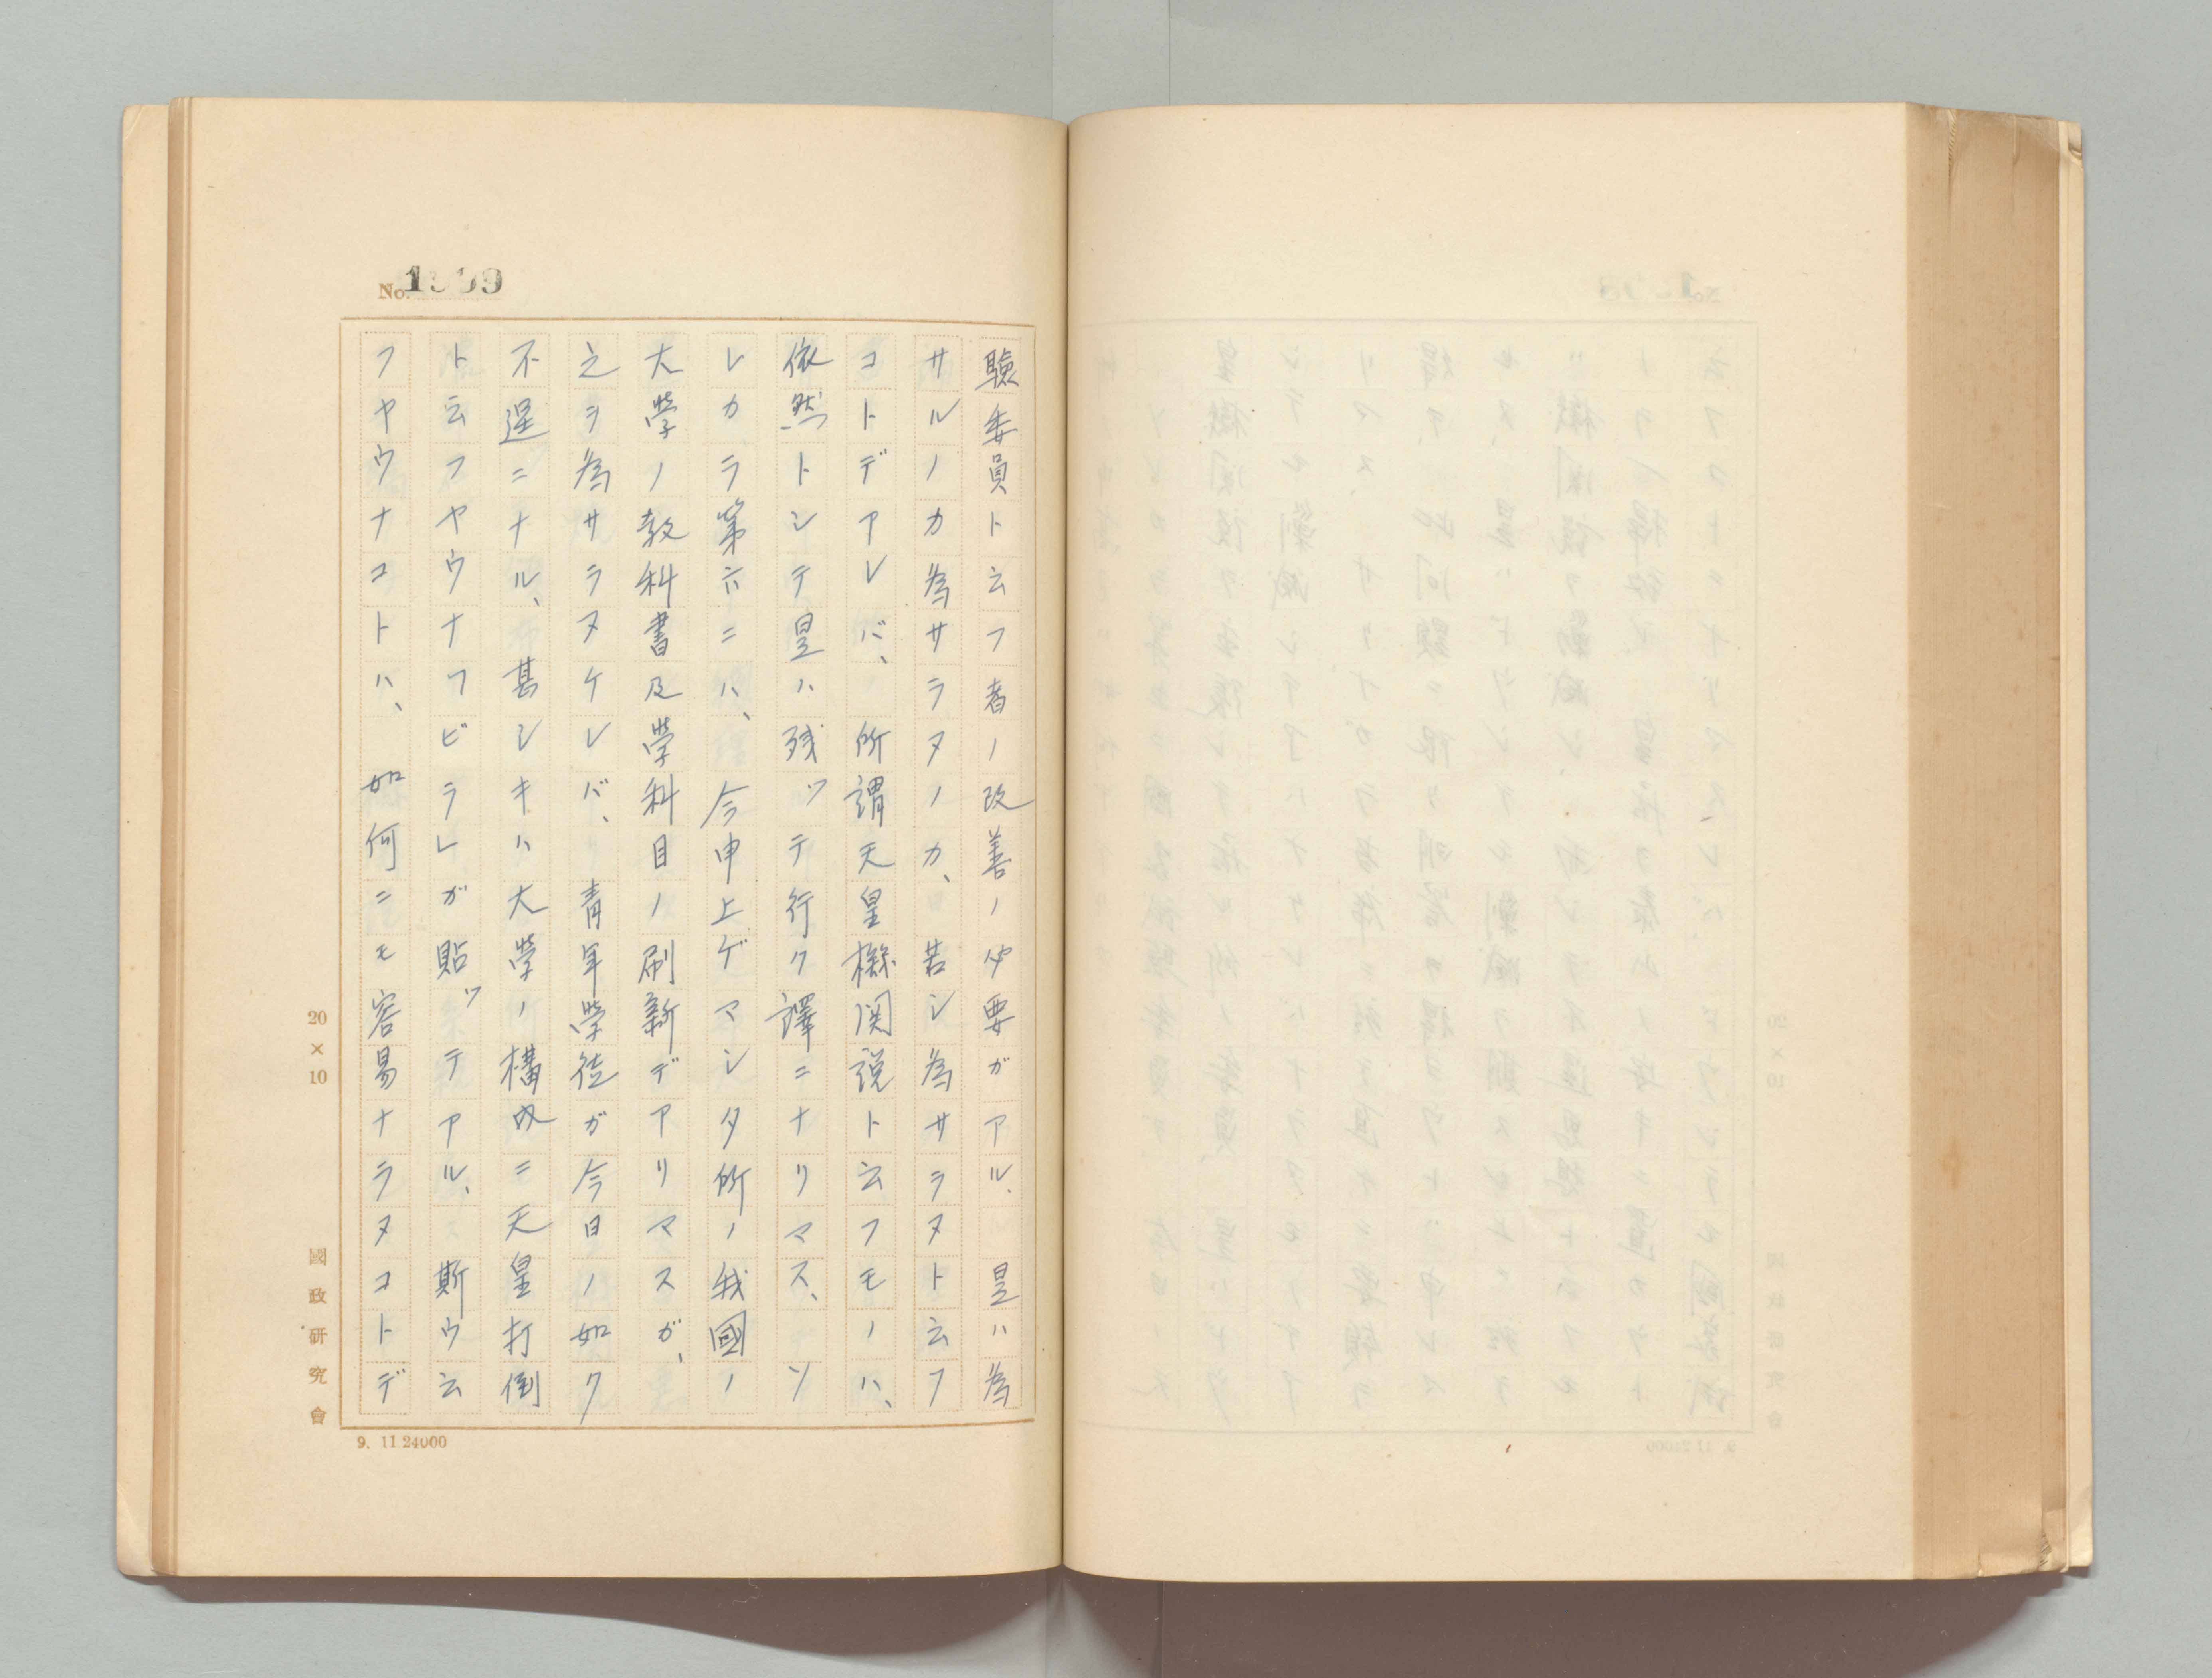 驗委員ト云フ者ノ改善ノ必要ガアル、是ハ為
サルノカ為サラヌノカ、若シ為サラヌト云フ
コトデアレバ、所謂天皇機関説ト云フモノハ、
依然トシテ是ハ残ッテ行ク譯ニナリマス、ソ
レカラ第六ニハ、今申上ゲマシタ所ノ我國ノ
大學ノ教科書及學科目ノ刷新デアリマスガ、
之ヲ為サラヌケレバ、青年學徒ガ今日ノ如ク
不逞ニナル、甚シキハ大學ノ構内ニ天皇打倒
ト云フヤウナフビラレガ貼ッテアル、斯ウ云
フヤウナコトハ、如何ニモ容易ナラヌコトデ
No.
20×10
國政研究會
9. 11 24000